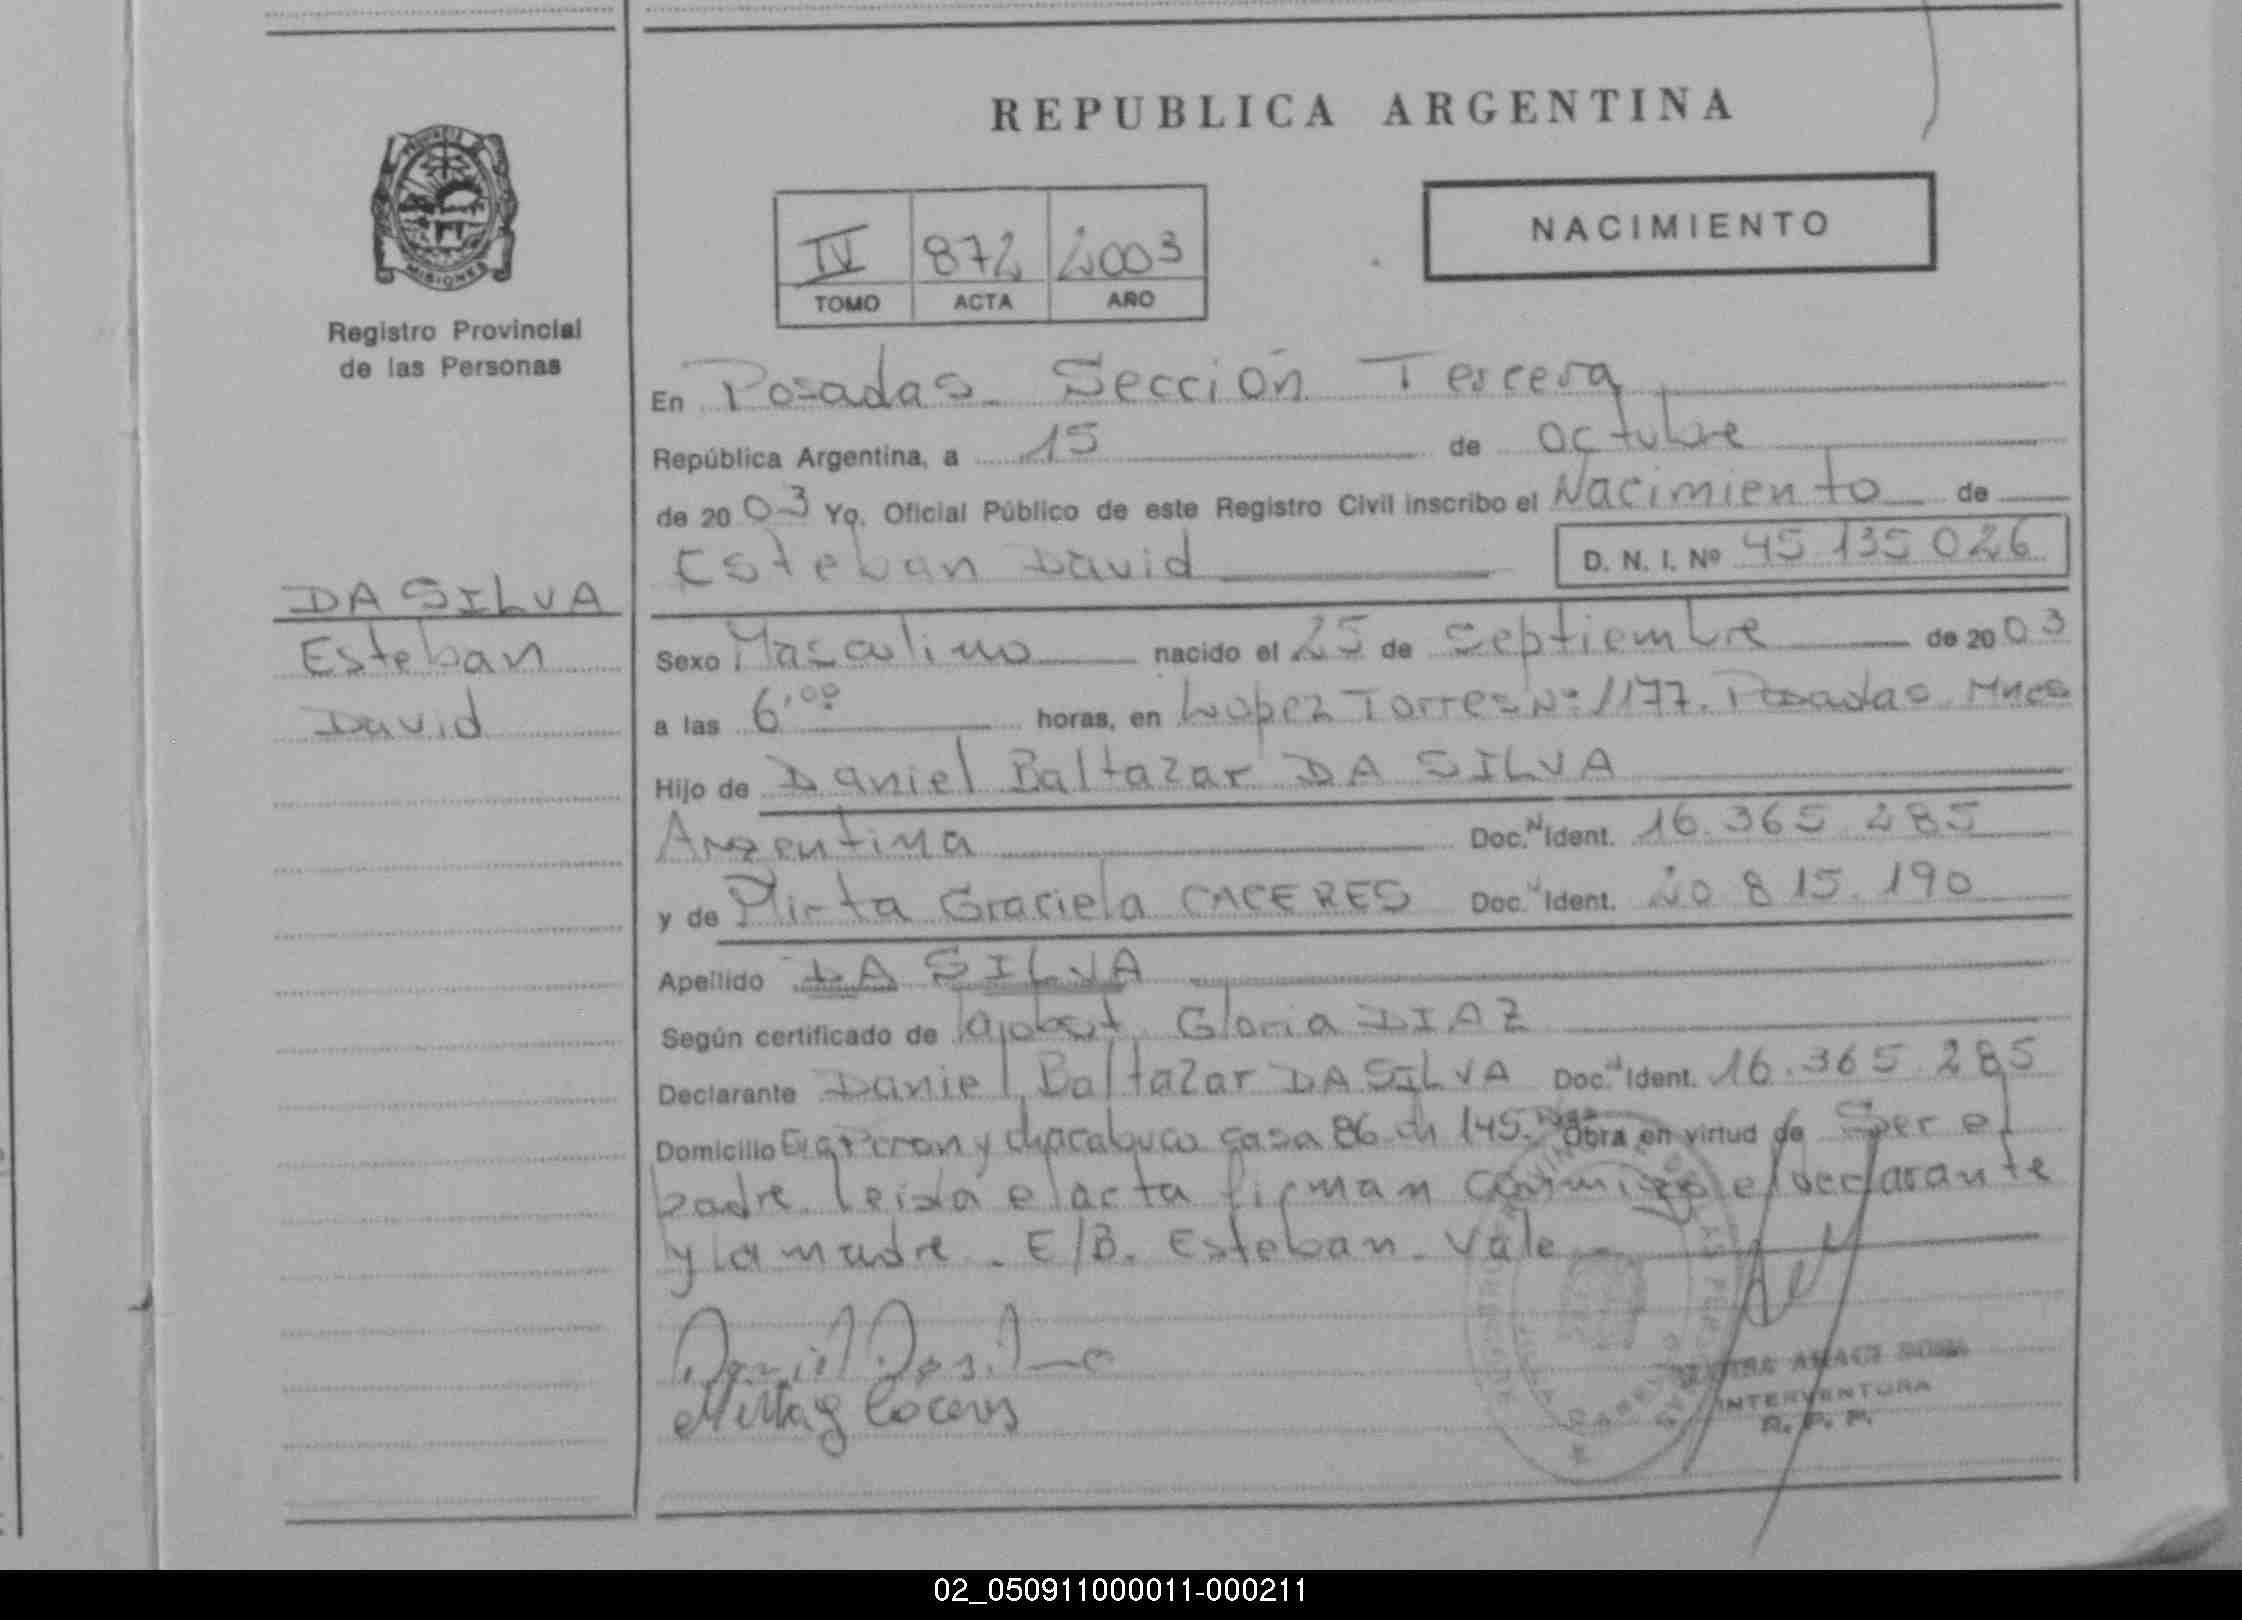 REPUBLICA ARGENTINA
NACIMIENTO
IV 872 2003
TOMO ACTA AÑO
PROVINCIA DE MISIONES
Registro Provincial
de las Personas
DA SILVA
Esteban
David
En Posadas. Sección Tercera
República Argentina, a 15 de octubre
de 2003 Yo, Oficial Público de este Registro Civil inscribo el Nacimiento de
Esteban David D. N. I. Nº 45 135 026
Sexo Masculino nacido el 25 de Septiembre de 2003
a las 6,00 horas, en Lopez Torres Nº 1177. Posadas. Mnes
Hijo de Daniel Baltazar DA SILVA
Argentina Doc. N Ident. 16.365.285
y de Mirta Graciela CACERES Doc. N Ident. 20 815.190
Apellido DA SILVA
Según certificado de Gloria DIAZ
Declarante Daniel Baltazar DA SILVA Doc. N Ident. 16.365.285
Domicilio Peron y chacabuco casa 86 ch 145. Obra en virtud de Ser el
padre. leida el acta firman conmigo el declarante
y la madre. E/B. Esteban. Vale
Daniel Dasilva
Mirta G Caceres
INTERVENTORA
R. P. P.
02_050911000011-000211